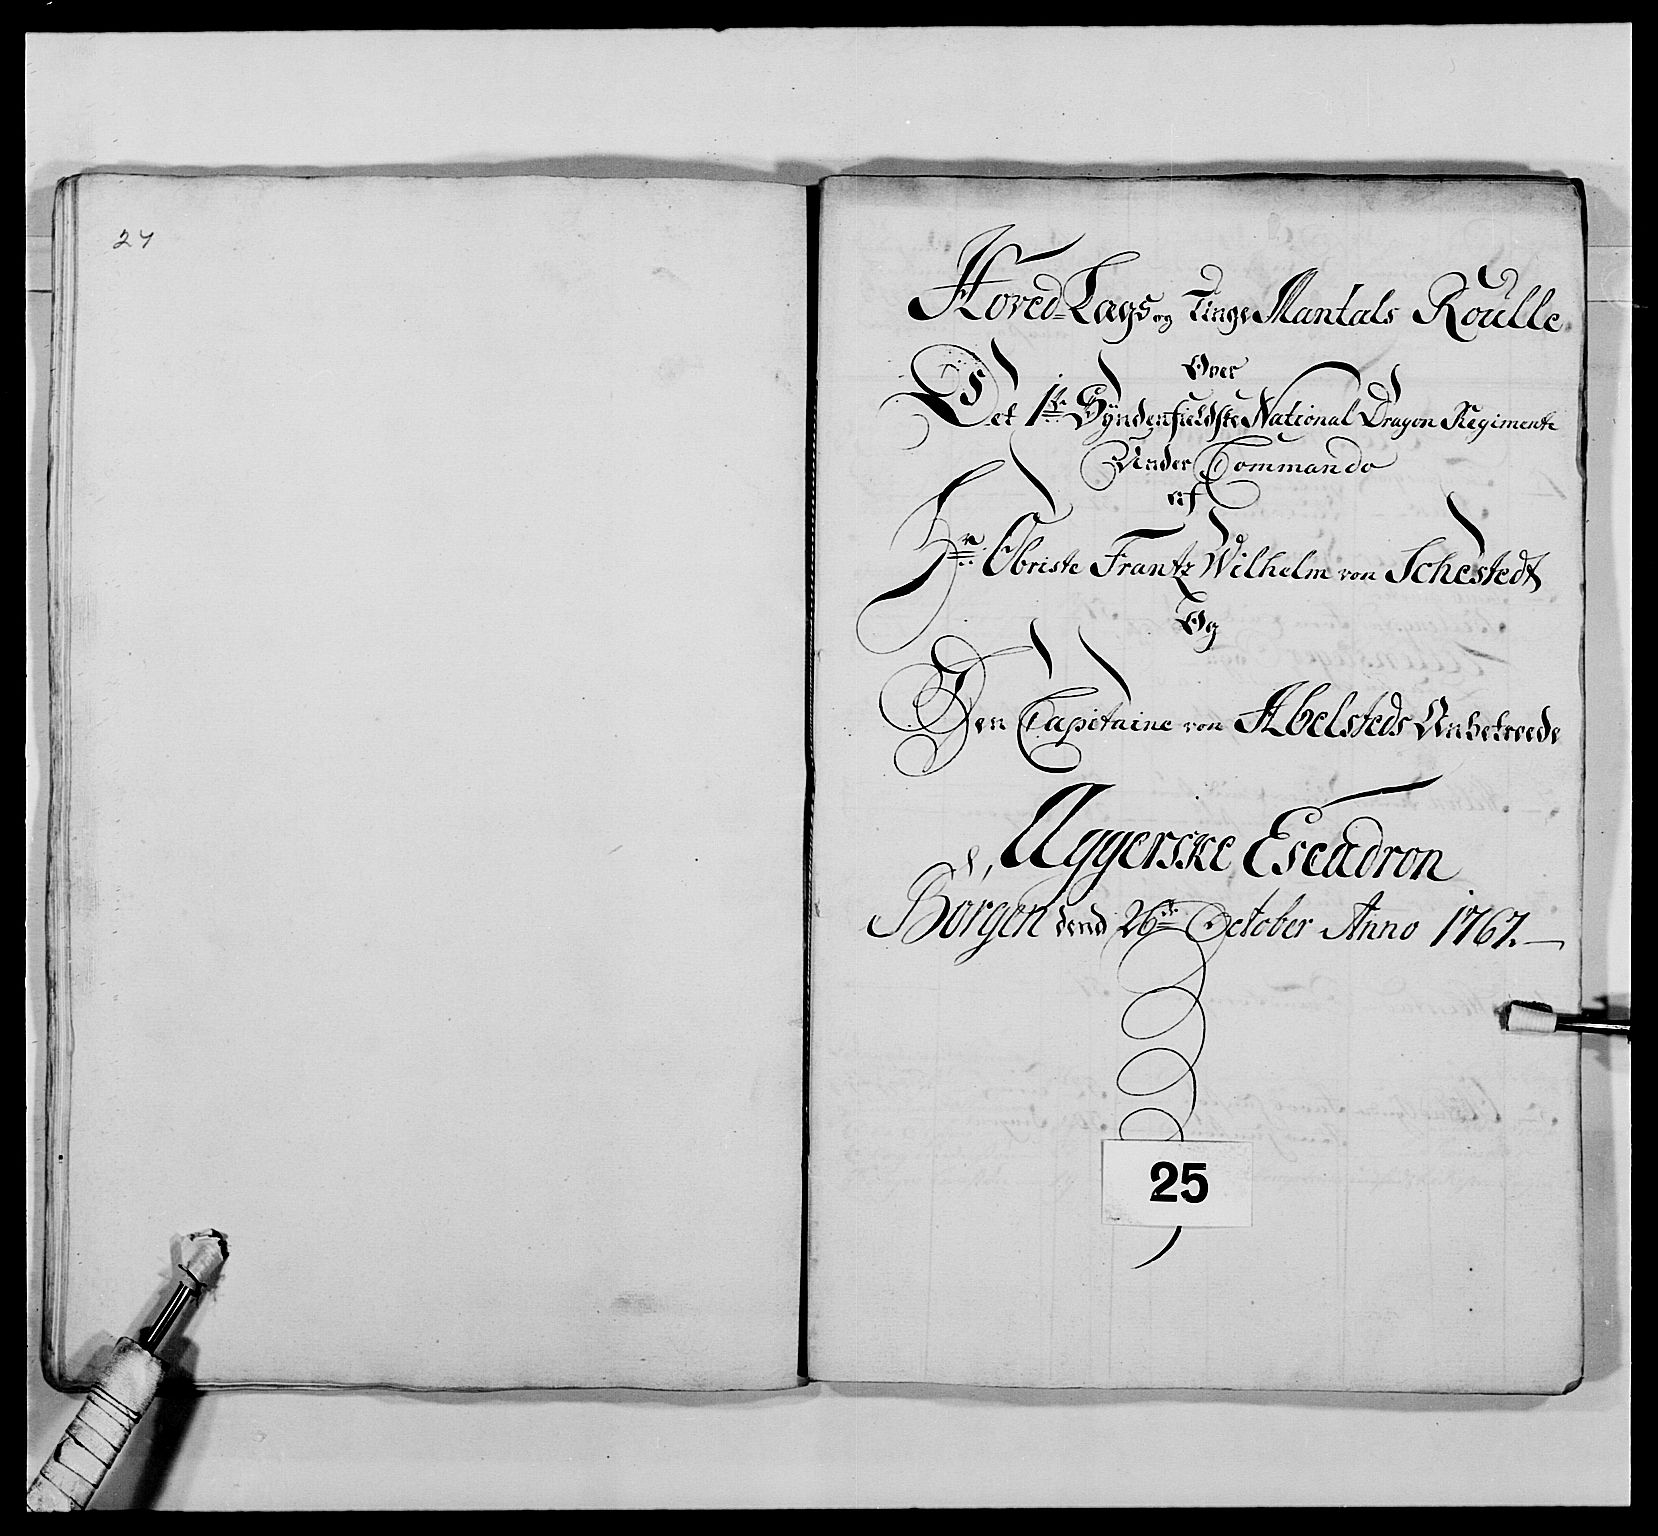 24
Hoved-Lægs og Tinge Mantals Roulle
Over
Det 1te Syndenfieldske National Dragon Regimente
Under Commando
af
Hr. Obriste Frantz Wilhelm von Schestedt
Og
Den Capitaine von Abelsteds Anbetroede
Aggerske Escadron
Borgen dend 26de October Anno 1767.
25